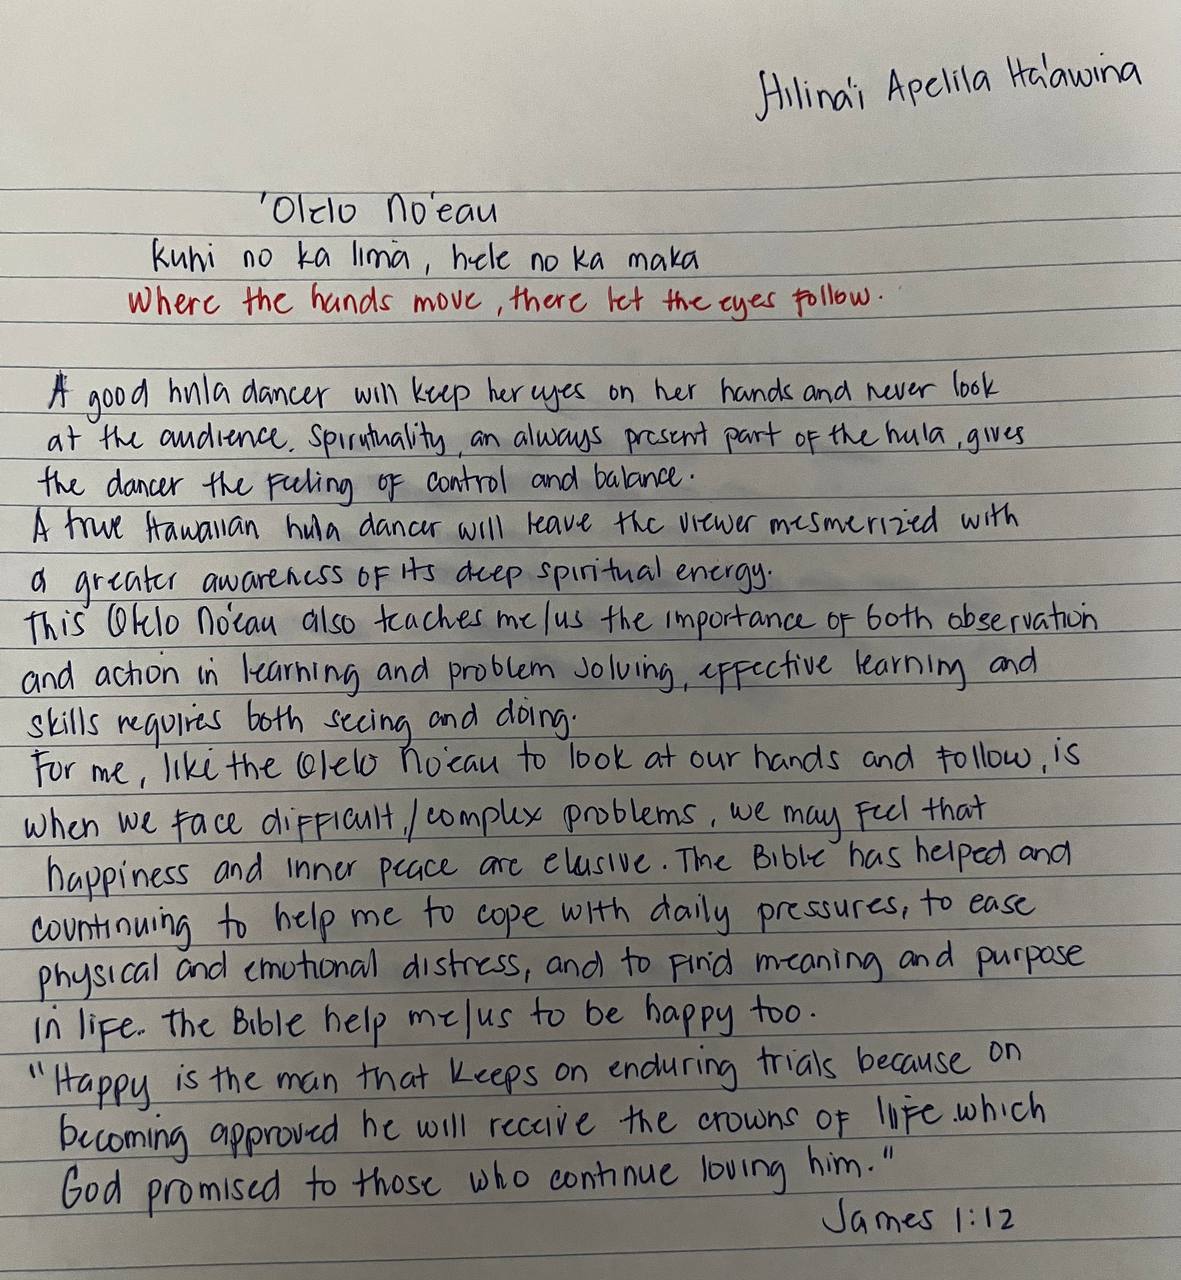 Hilina'i Apelila Ha'awina
'Olelo No'eau
Kuhi no ka lima, hele no ka maka
Where the hands move, there let the eyes follow.
A good hula dancer will keep her eyes on her hands and never look
at the audience. Spirutuality, an always present part of the hula, gives
the dancer the feeling of control and balance.
A true Hawaiian hula dancer will leave the viewer mesmerized with
a greater awareness of its deep spiritual energy.
This Olelo No'eau also teaches me/us the importance of both observation
and action in learning and problem solving, effective learning and
skills requires both seeing and doing.
For me, like the Olelo No'eau to look at our hands and follow, is
when we face difficult/complex problems, we may feel that
happiness and inner peace are elusive. The Bible has helped and
countinuing to help me to cope with daily pressures, to ease
physical and emotional distress, and to find meaning and purpose
in life. The Bible help me/us to be happy too.
"Happy is the man that keeps on enduring trials because on
becoming approved he will receive the crowns of life which
God promised to those who continue loving him."
James 1:12